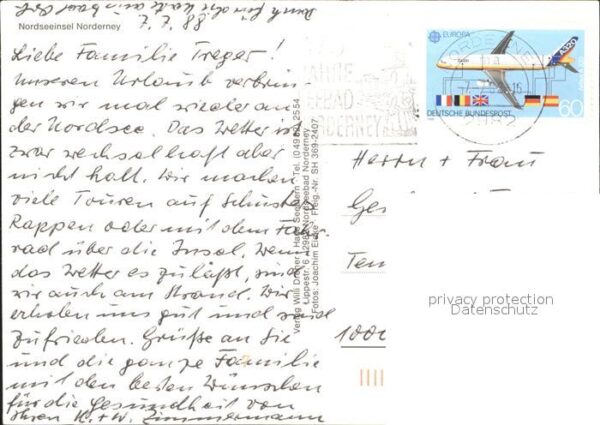 Nordseeinsel Norderney
7.7.88
Liebe Familie Treger!
Unseren Urlaub verbrin
gen wir mal wieder an
der Nordsee. Das Wetter ist
zwar wechselhaft aber
nicht kalt. Wir machen
viele Touren auf Schusters
Rappen oder mit dem Fahr
rad über die Insel. Wenn
das Wetter es zuläßt, sind
wir auch am Strand. Wir
erholen uns gut und sind
zufrieden. Grüße an Sie
und die ganze Familie
mit den besten Wünschen
für die Gesundheit von
Ihren H.+W. Zimmermann
Verlag Willi
Haus Seestern · Tel. (0 49 32) 25 54
Lippestr. 16 · 2982 Nordseebad Norderney
Fotos: Joachim · Freig.-Nr. SH 369-2407
JAHRE
NORDERNEY
EUROPA
A320
60
DEUTSCHE BUNDESPOST
2982
Herrn + Frau
Ge
Ten
1000
privacy protection
Datenschutz